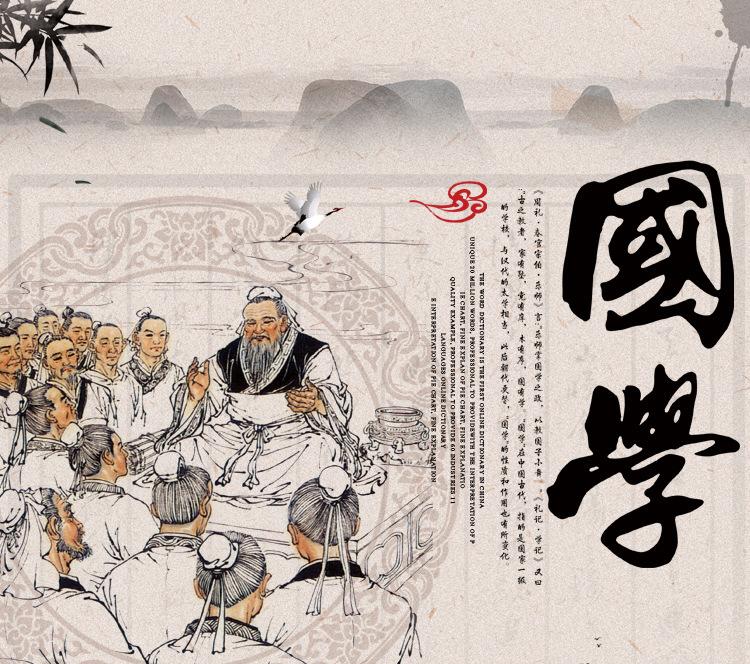 國學
《周礼·春官宗伯·乐师》言:乐师掌国学之政，以教国子小舞。《礼记·学记》又曰
:古之教者，家有塾，党有庠，术有序，国有学。国学在中国古代，指的是国家一级
的学校，与汉代的太学相当。此后朝代更替，国学的性质和作用也有所变化
THE WORD DICTIONARY IS THE FIRST ONLINE DICTIONARY IN CHINA
UNIQUE 20 MILLION WORDS, PROFESSIONAL TO PROVIDEWITH THE INTERPRETATION OF P
IE CHART, FINE EXPLAN OF PIE CHART, FINE EXPLANATIO
QUALITY EXAMPLE, PROFESSIONAL T TO PROVIDE 60 INDUSTRIES 11
LANGUAGES ONLINE DICTIONARY
E INTERPRETATION OF PIE CHART, FINE EXPLANATION